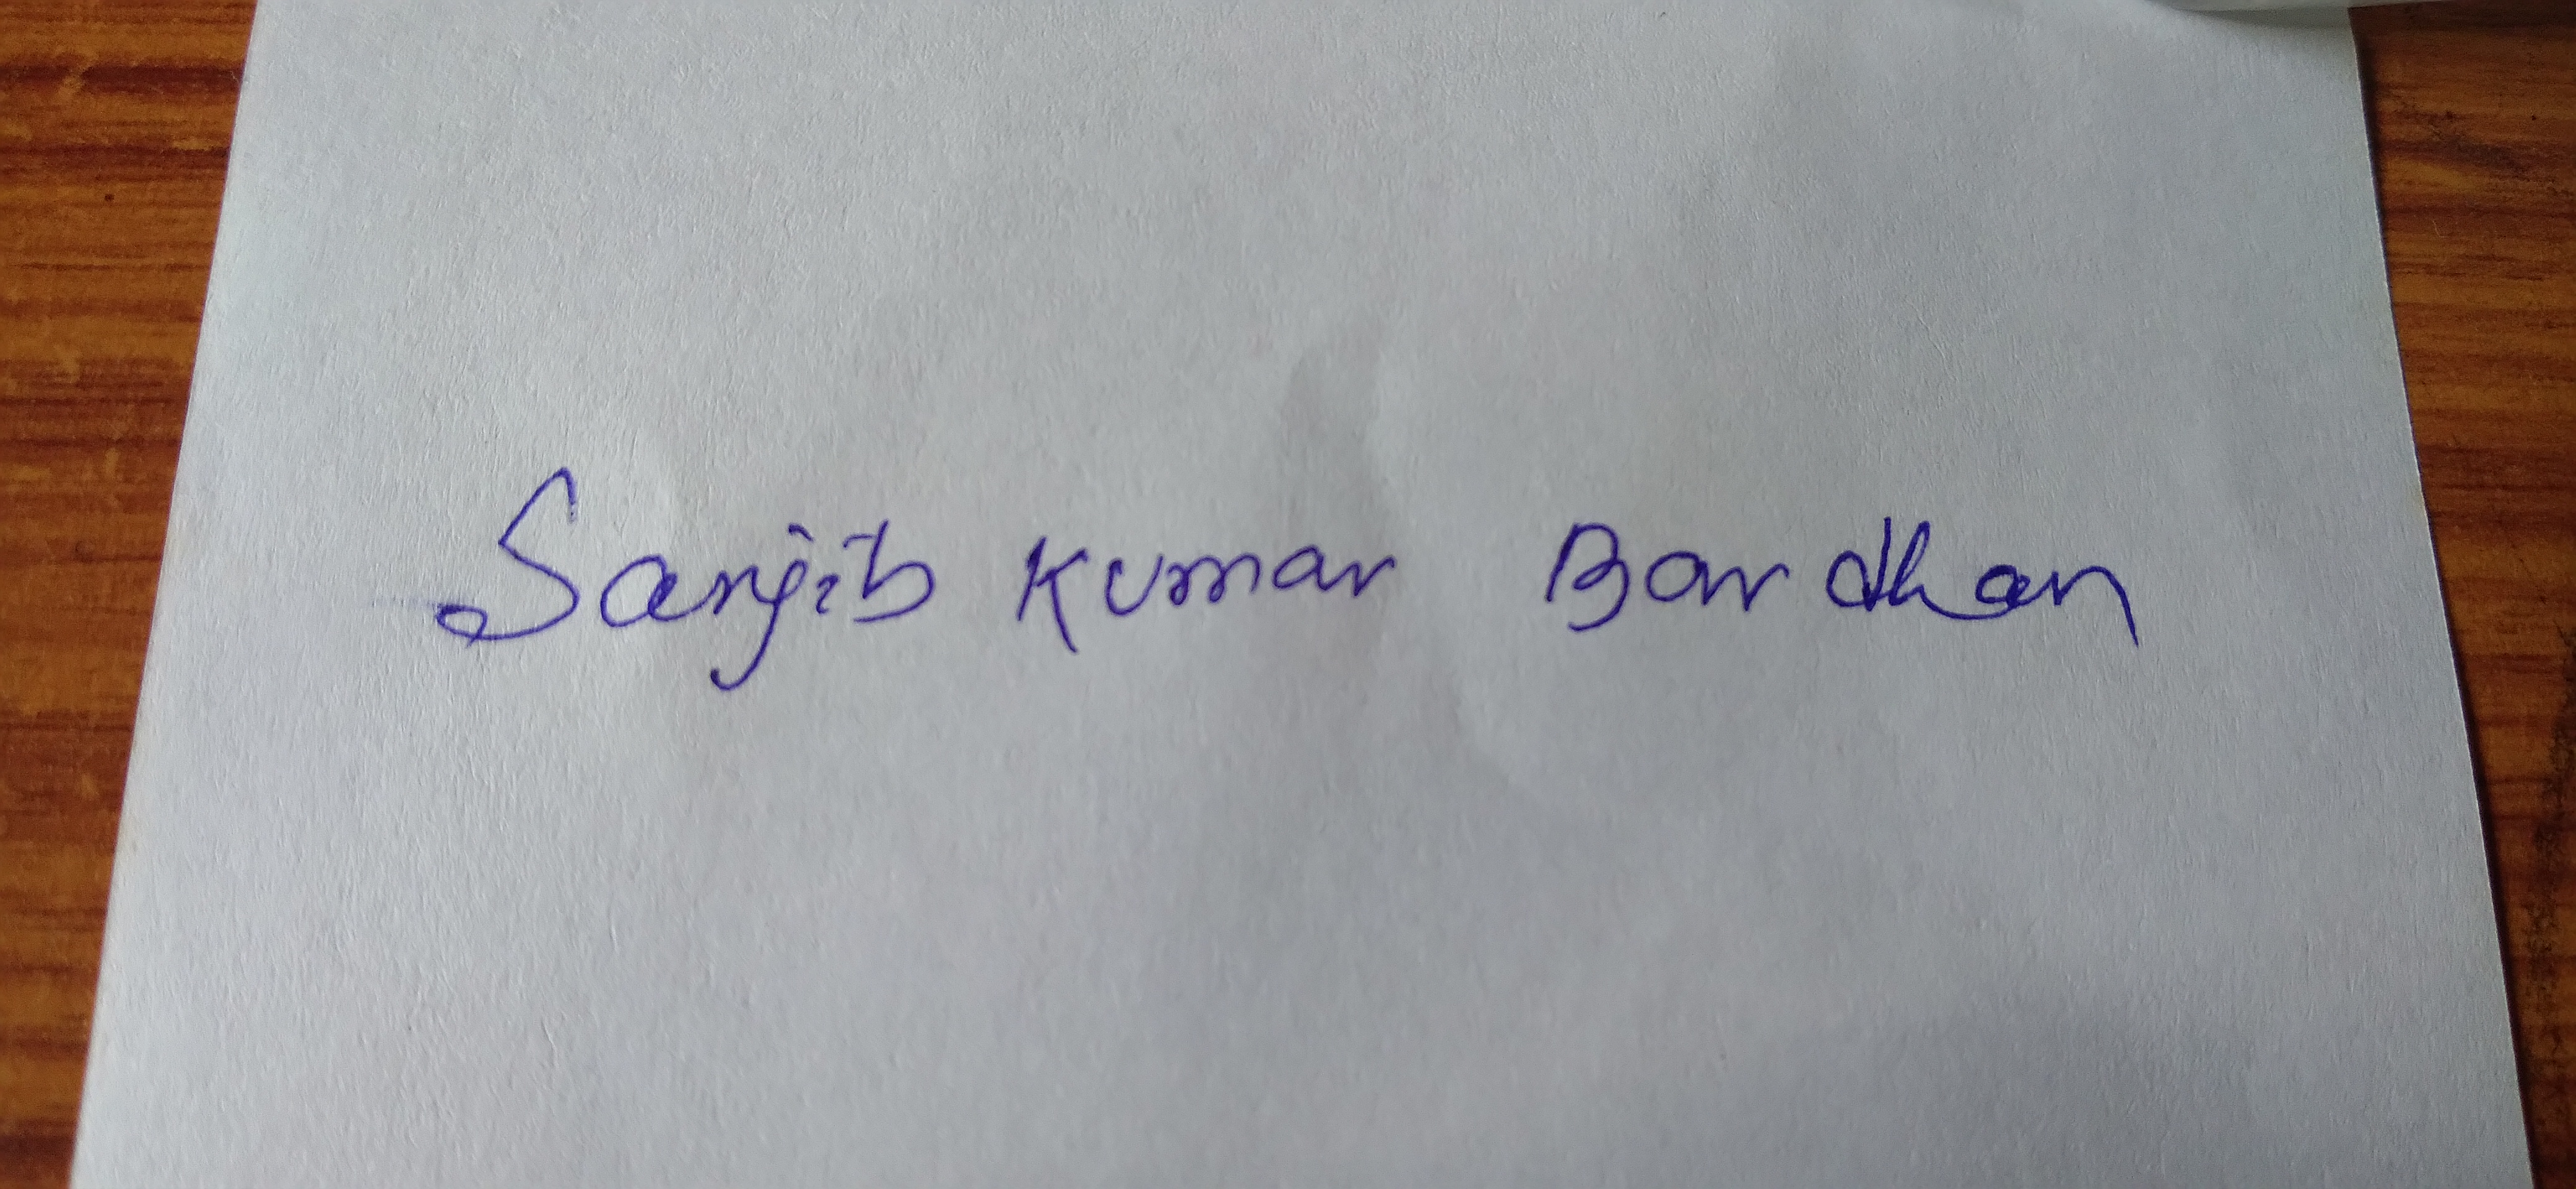 Sanjib Kumar Bardhan